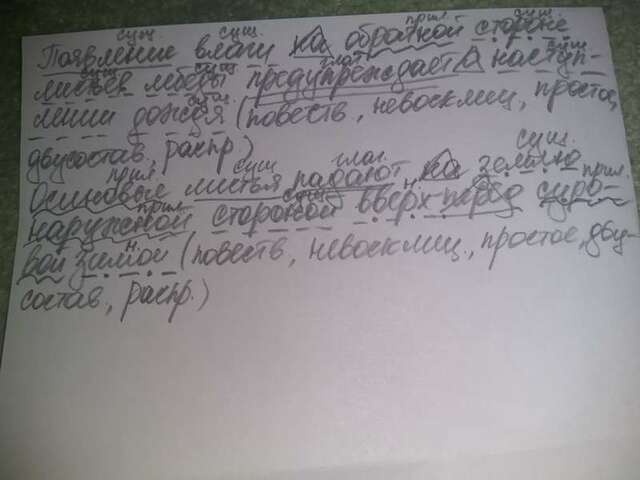 сущ. сущ. прил. сущ.
Появление влаги на обратной стороне
сущ. сущ. глаг. сущ.
листьев лебеды предупреждает о наступ-
сущ.
лении дождя (повеств, невосклиц, простое,
двусостав, распр.)
прил. сущ. глаг. сущ.
Осиновые листья падают на землю
прил. сущ. н. прил.
наружной стороной вверх-перед суро-
н.
вой зимой (повеств, невосклиц., простое, дву-
состав, распр.)